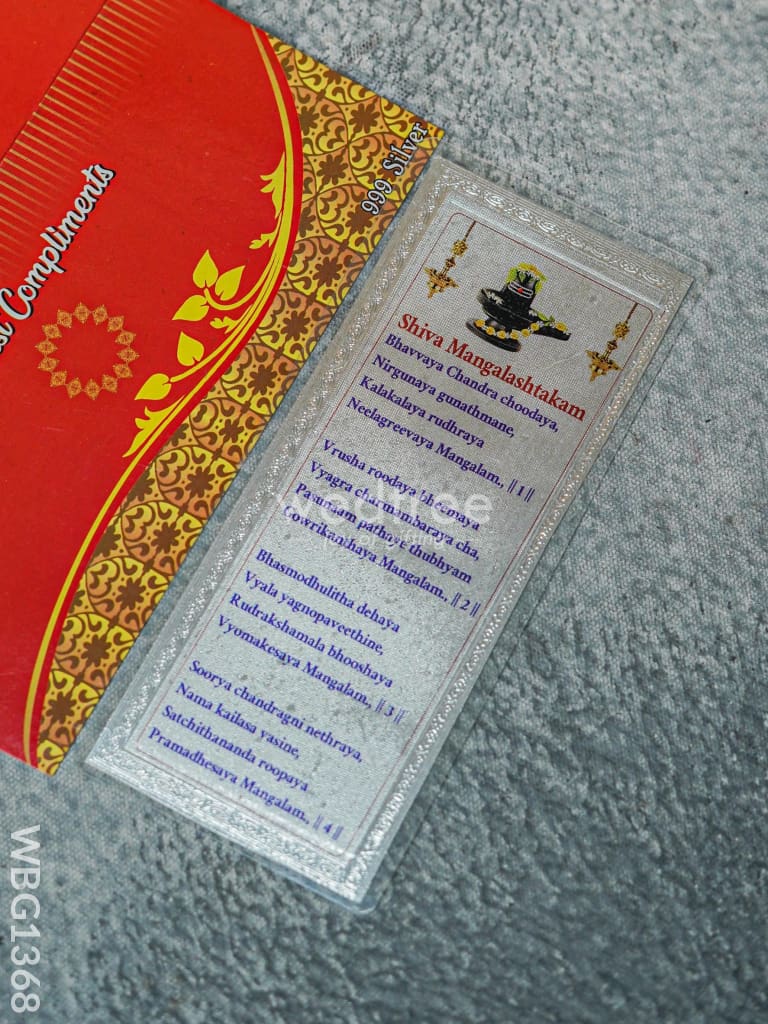 999 Silver
Compliments
Shiva Mangalashtakam
Bhavvaya Chandra choodaya,
Nirgunaya gunathmane,
Kalakalaya rudhraya
Neelagreevaya Mangalam., || 1 ||
Vrusha roodaya bheemaya
Vyagra charmambaraya cha,
Pasunaam pathaye thubhyam
Gowrikanthaya Mangalam., || 2 ||
Bhasmodhulitha dehaya
Vyala yagnopaveethine,
Rudrakshamala bhooshaya
Vyomakesaya Mangalam., || 3 ||
Soorya chandragni nethraya,
Nama kailasa vasine,
Satchithananda roopaya
Pramadhesaya Mangalam., || 4 ||
wedtree
WBG1368